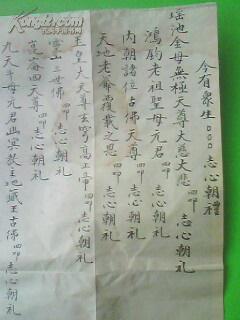 今有眾生□□□志心朝禮
瑤池金母無極天尊大慈大悲四叩志心朝礼
鴻鈞老祖聖母元君四叩志心朝礼
內朝諸位古佛天尊四叩志心朝礼
天地老爺西復載之恩四叩志心朝礼
玉皇大天尊玄穹高上帝四叩志心朝礼
灵山三世佛四叩志心朝礼
四天尊四叩志心朝礼
九天千母元君幽冥教主地藏王古佛四叩志心朝礼